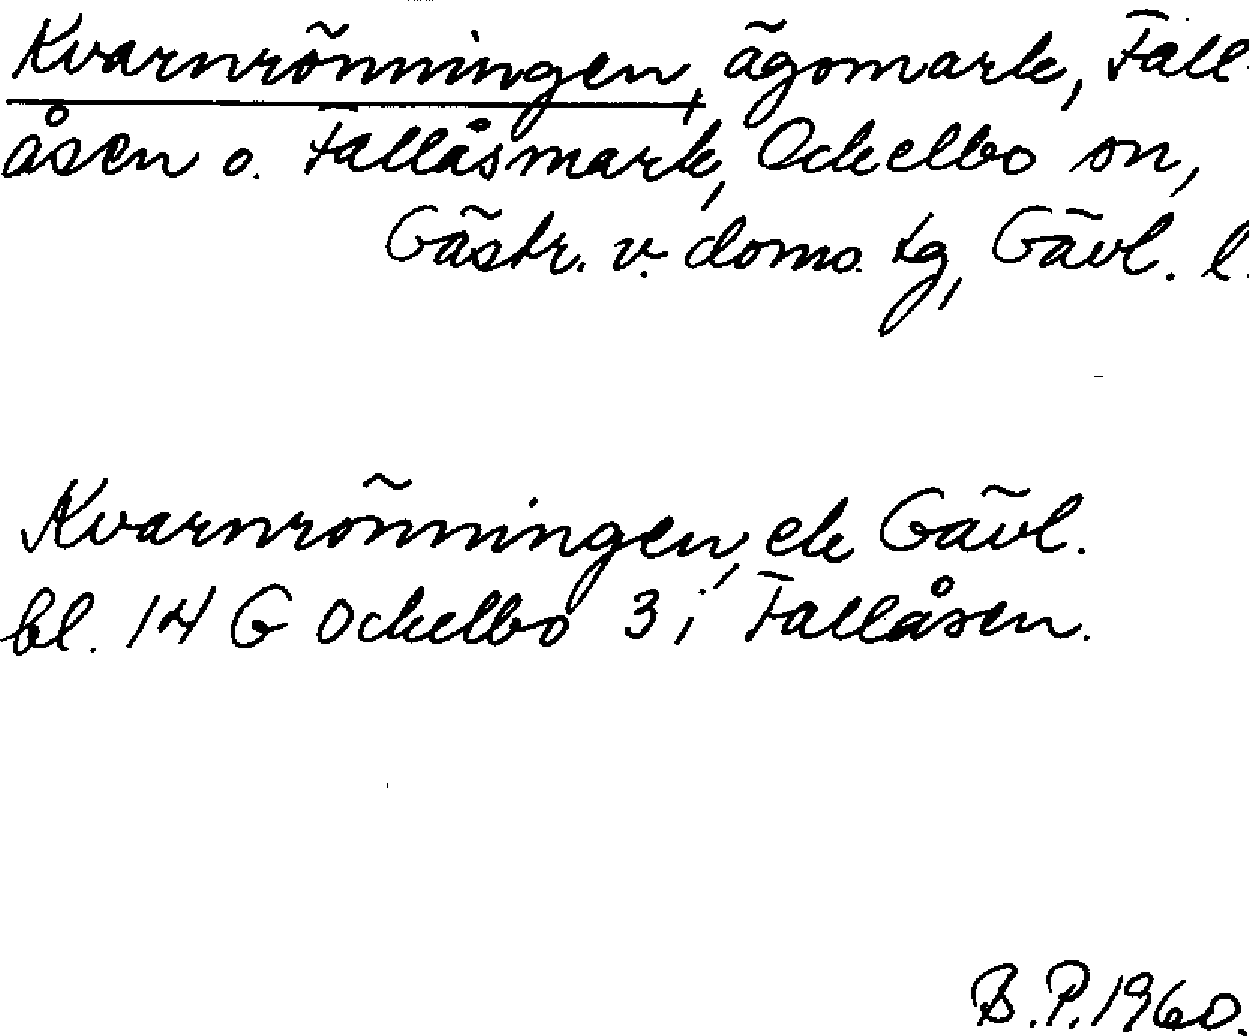 Kvarnrönningen, ägomark, Fall-
åsen o. Fallåsmark, Ockelbo sn,
Gästr. v. doms. tg, Gävl. l.
Kvarnrönningen, ek Gävl.
bl. 14 G Ockelbo 3 i, Fallåsen.
B.P. 1960.